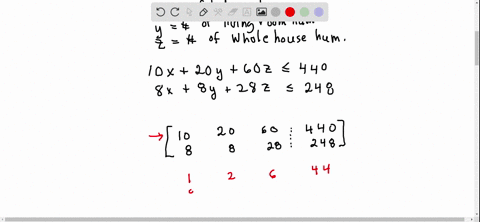 y = # of living room hum.
z = # of whole house hum.
10x + 20y + 60z ≤ 440
8x + 8y + 28z ≤ 248
→ [ 10 20 60 ⋮ 440 ]
[ 8 8 28 ⋮ 248 ]
1 2 6 44